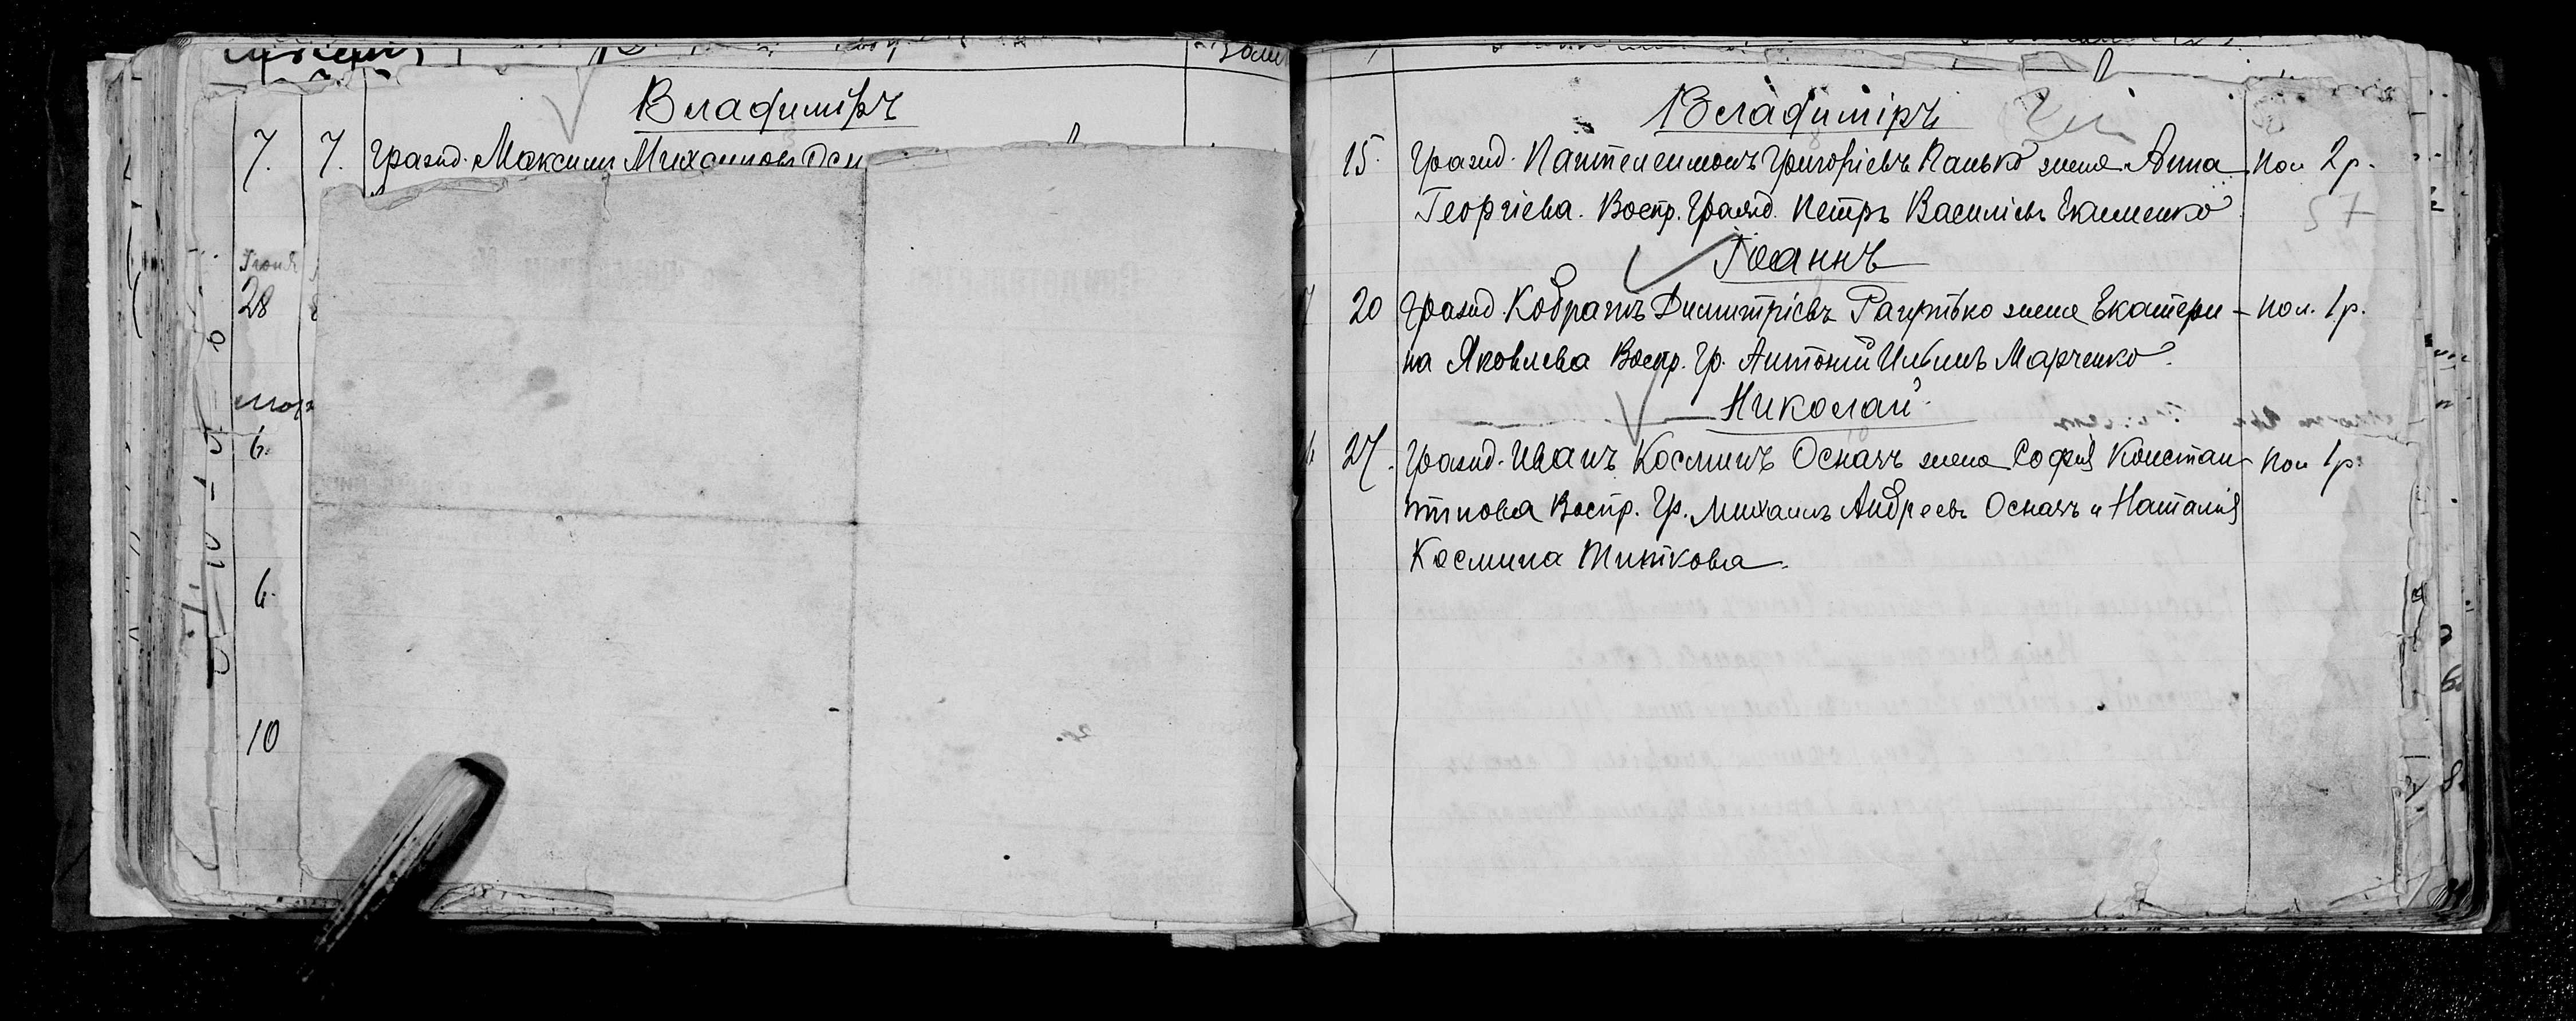 Владиміръ
7. 7. Гражд. Максимъ Михаиловъ Осн
Іюня
28
6.
6.
10
Владиміръ
15. Гражд. Пантелеимонъ Григоріевъ Панько жена Анна Пол 2 р.
Георгіева. Воспр. Гражд. Петръ Василіевъ Екименко 57
Іоаннъ
20 Гражд. Кодратъ Димитріевъ Рагутько жена Екатери- Пол. 1 р.
на Яковлева Воспр. Гр. Антоній Ильинъ Марченко.
Николай
27. Гражд. Иванъ Косминъ Осначъ жена Софія Констан- Пол 1 р.
тинова Воспр. Гр. Михаилъ Андреевъ Осначъ и Наталія
Космина Титкова.